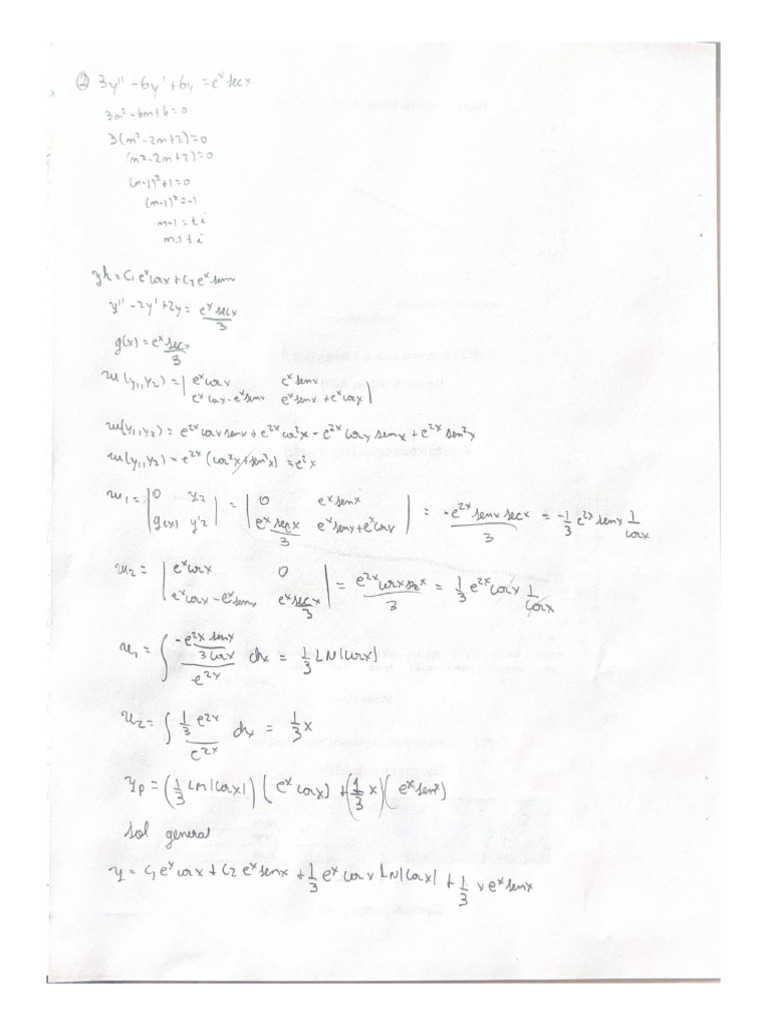 ② 3y'' - 6y' + 6y = e^x sec x
3m² - 6m + 6 = 0
3(m² - 2m + 2) = 0
(m² - 2m + 2) = 0
(m-1)² + 1 = 0
(m-1)² = -1
m-1 = ± i
m = 1 ± i
yh = C₁e^x cos x + C₂e^x sen x
y'' - 2y' + 2y = e^x sec x / 3
g(x) = e^x sec x / 3
w(y₁,y₂) = | e^x cos x   e^x sen x |
| e^x cos x - e^x sen x   e^x sen x + e^x cos x |
w(y₁,y₂) = e^2x cos x sen x + e^2x cos² x - e^2x cos x sen x + e^2x sen² x
w(y₁,y₂) = e^2x (cos² x + sen² x) = e^2x
w₁ = | 0   y₂ | = | 0   e^x sen x | = -e^2x sen x sec x / 3 = -1/3 e^2x sen x 1/cos x
| g(x)   y'₂ |   | e^x sec x / 3   e^x sen x + e^x cos x |
w₂ = | e^x cos x   0 | = e^2x cos x sec x / 3 = 1/3 e^2x cos x 1/cos x
| e^x cos x - e^x sen x   e^x sec x / 3 |
u₁ = ∫ (-e^2x sen x / 3 cos x) / e^2x dx = 1/3 LN|cos x|
u₂ = ∫ (1/3 e^2x) / e^2x dx = 1/3 x
yp = (1/3 LN|cos x|)(e^x cos x) + (1/3 x)(e^x sen x)
sol general
y = C₁e^x cos x + C₂ e^x sen x + 1/3 e^x cos x LN|cos x| + 1/3 x e^x sen x